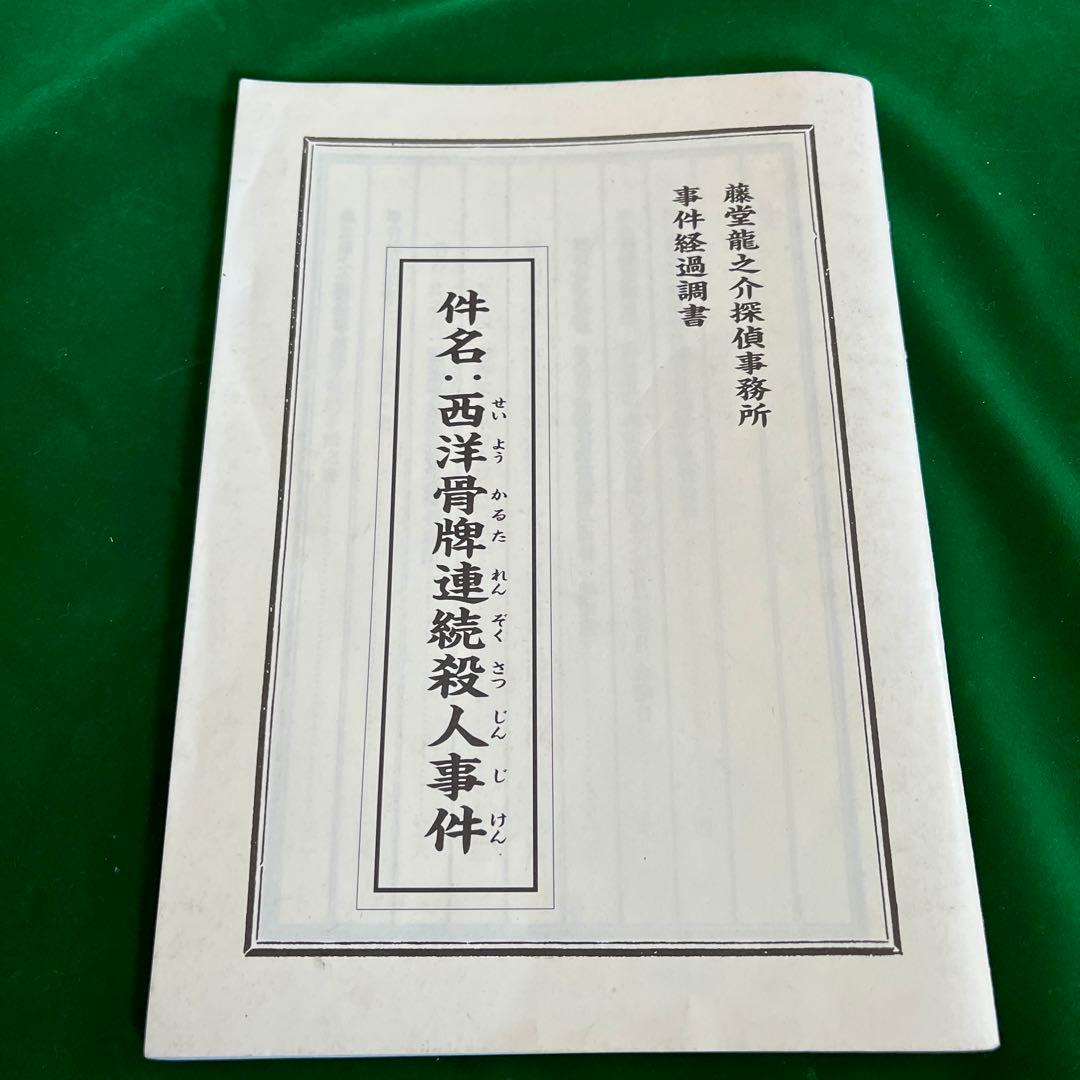 藤堂龍之介探偵事務所
事件経過調書
件名：西洋骨牌連続殺人事件
せいようかるたれんぞくさつじんじけん